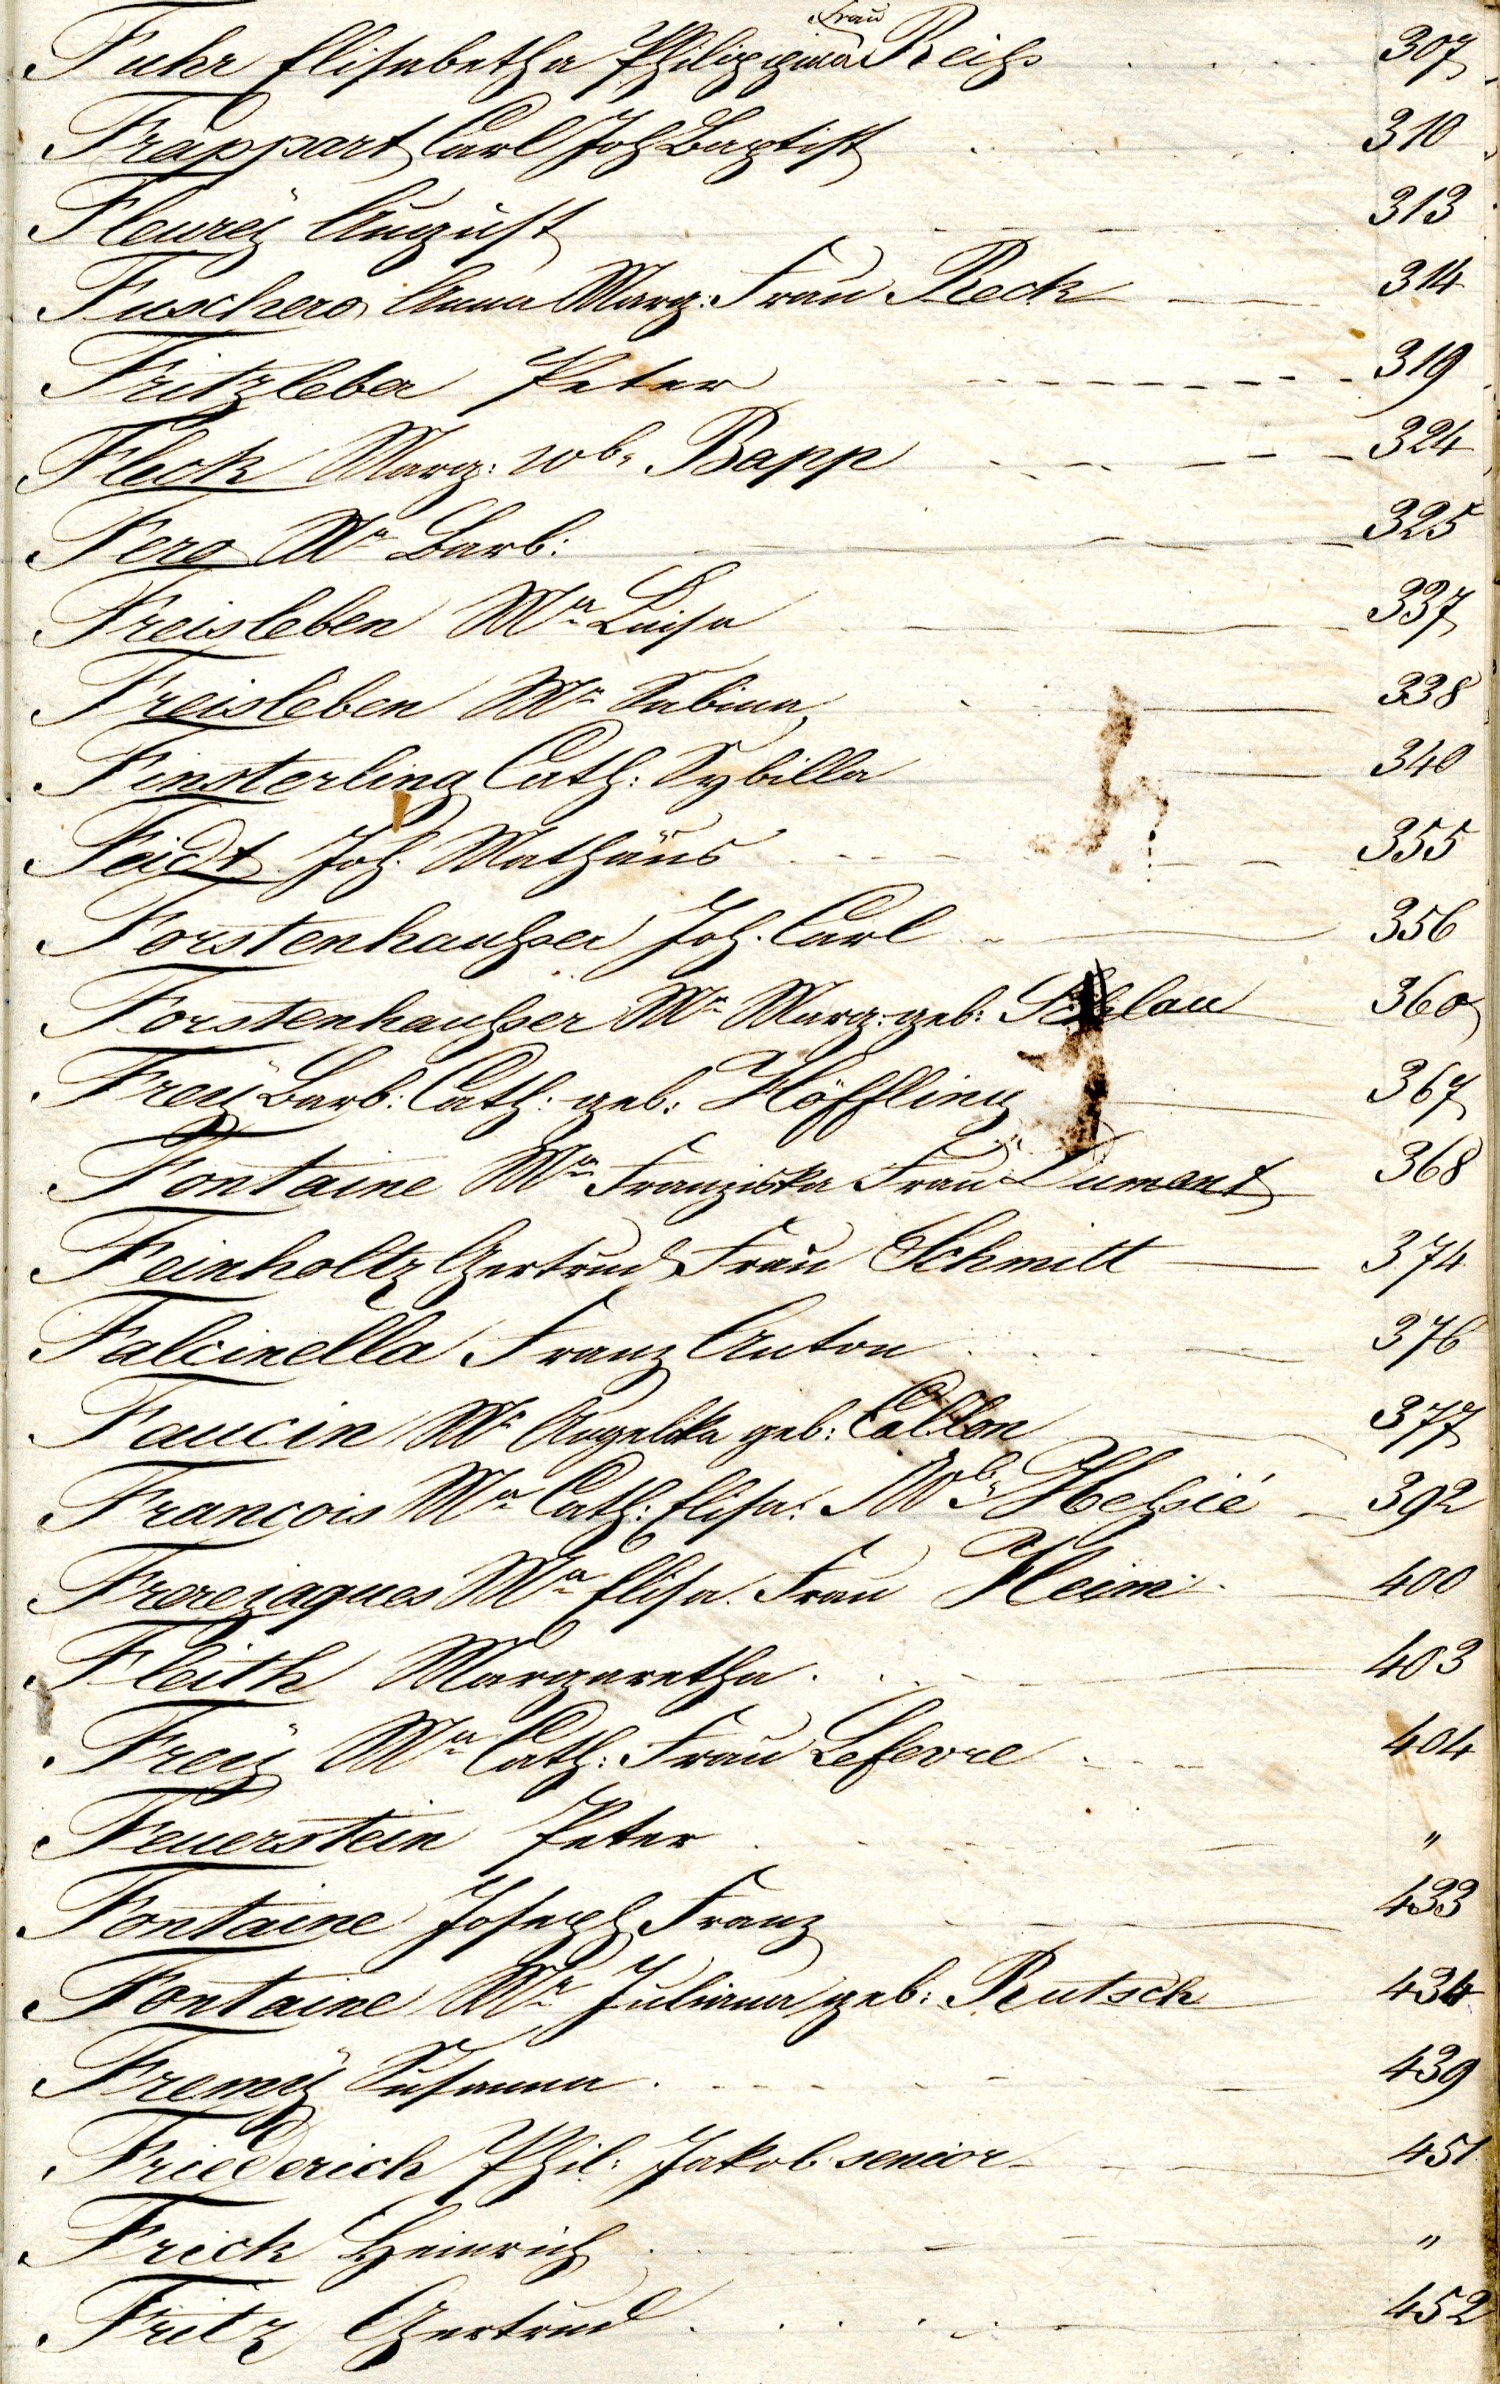 Fuhr Elisabetha Philippina Frau Reihs 307
Frappart Carl Joh Baptist 310
Fleureÿ August 313
Fuschero Anna Marg: Frau Reck 314
Fritzleber Peter 319
Fleck Marg: wb. Bapp 324
Fero Mª Barb: 325
Freisleben Mª Luisa 337
Freisleben Mª Sabina 338
Finsterling Cath: Sybilla 340
Feidt Joh. Mathäus 355
Forstenhausser Joh. Carl 356
Forstenhausser Mª Marg: geb: 360
Freÿ Barb: Cath: geb: Höffling 367
Fontaine Mª Franziska Frau Dumont 368
Feinholtz Gertrud Frau Schmitt 374
Falcinella Franz Anton 376
Faucin Mª Angelika geb: Callon 377
François Mª Cath: Elisa: Wb. 392
Frerejaques Mª Elisa. Frau Heim 400
Fleith Margaretha 403
Freÿ Mª Cath: Frau Lefevre 404
Feuerstein Peter "
Fontaine Joseph Franz 433
Fontaine Mª Juliana geb: Rutsch 434
Fremÿ Susanna 439
Friederich Phil: Jakob senior 451
Frick Heinrich "
Fritz Gertrud 452